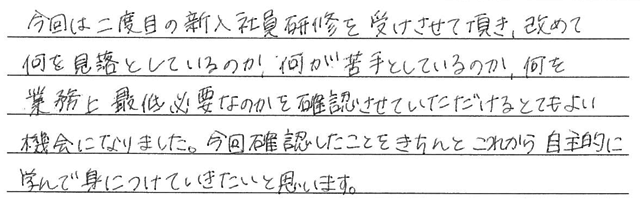 今回は二度目の新入社員研修を受けさせて頂き、改めて
何を見落としているのか、何が苦手としているのか、何を
業務上最低必要なのかを確認させていただけるとてもよい
機会になりました。今回確認したことをきちんとこれから自主的に
学んで身につけていきたいと思います。